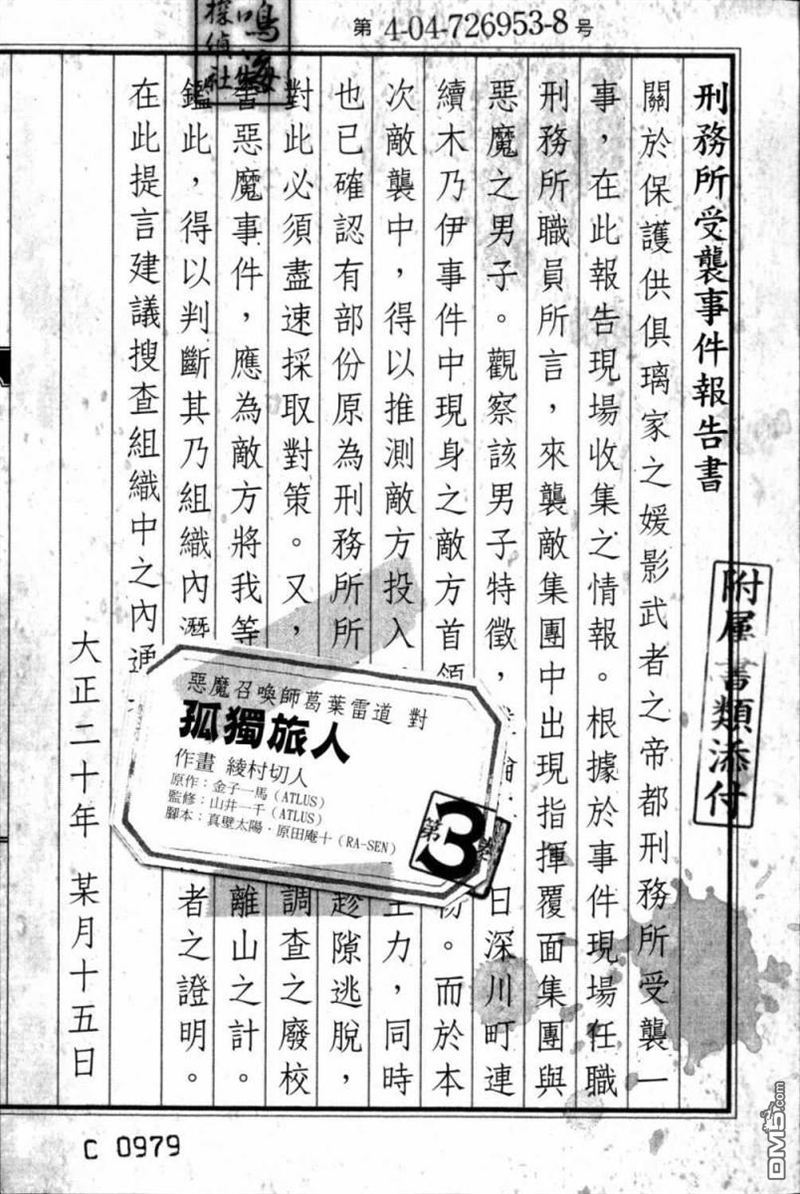 第 4-04-726953-8 号
鳴海
探偵社
刑務所受襲事件報告書
關於保護供俱璃家之媛影武者之帝都刑務所受襲一
事，在此報告現場收集之情報。根據於事件現場任職
刑務所職員所言，來襲敵集團中出現指揮覆面集團與
惡魔之男子。觀察該男子特徵，
日深川町連
續木乃伊事件中現身之敵方首領
。而於本
次敵襲中，得以推測敵方投入
力，同時
也已確認有部份原為刑務所所
趁隙逃脫，
對此必須盡速採取對策。又，
調查之廢校
舍惡魔事件，應為敵方將我等
離山之計。
鑑此，得以判斷其乃組織內潛
者之證明。
在此提言建議搜查組織中之內通
大正二十年 某月十五日
附屬書類添付
惡魔召喚師葛葉雷道 對
孤獨旅人
作畫 綾村切人
原作：金子一馬（ATLUS）
監修：山井一千（ATLUS）
腳本：真壁太陽・原田庵十（RA-SEN）
第3
C 0979
DM5.com